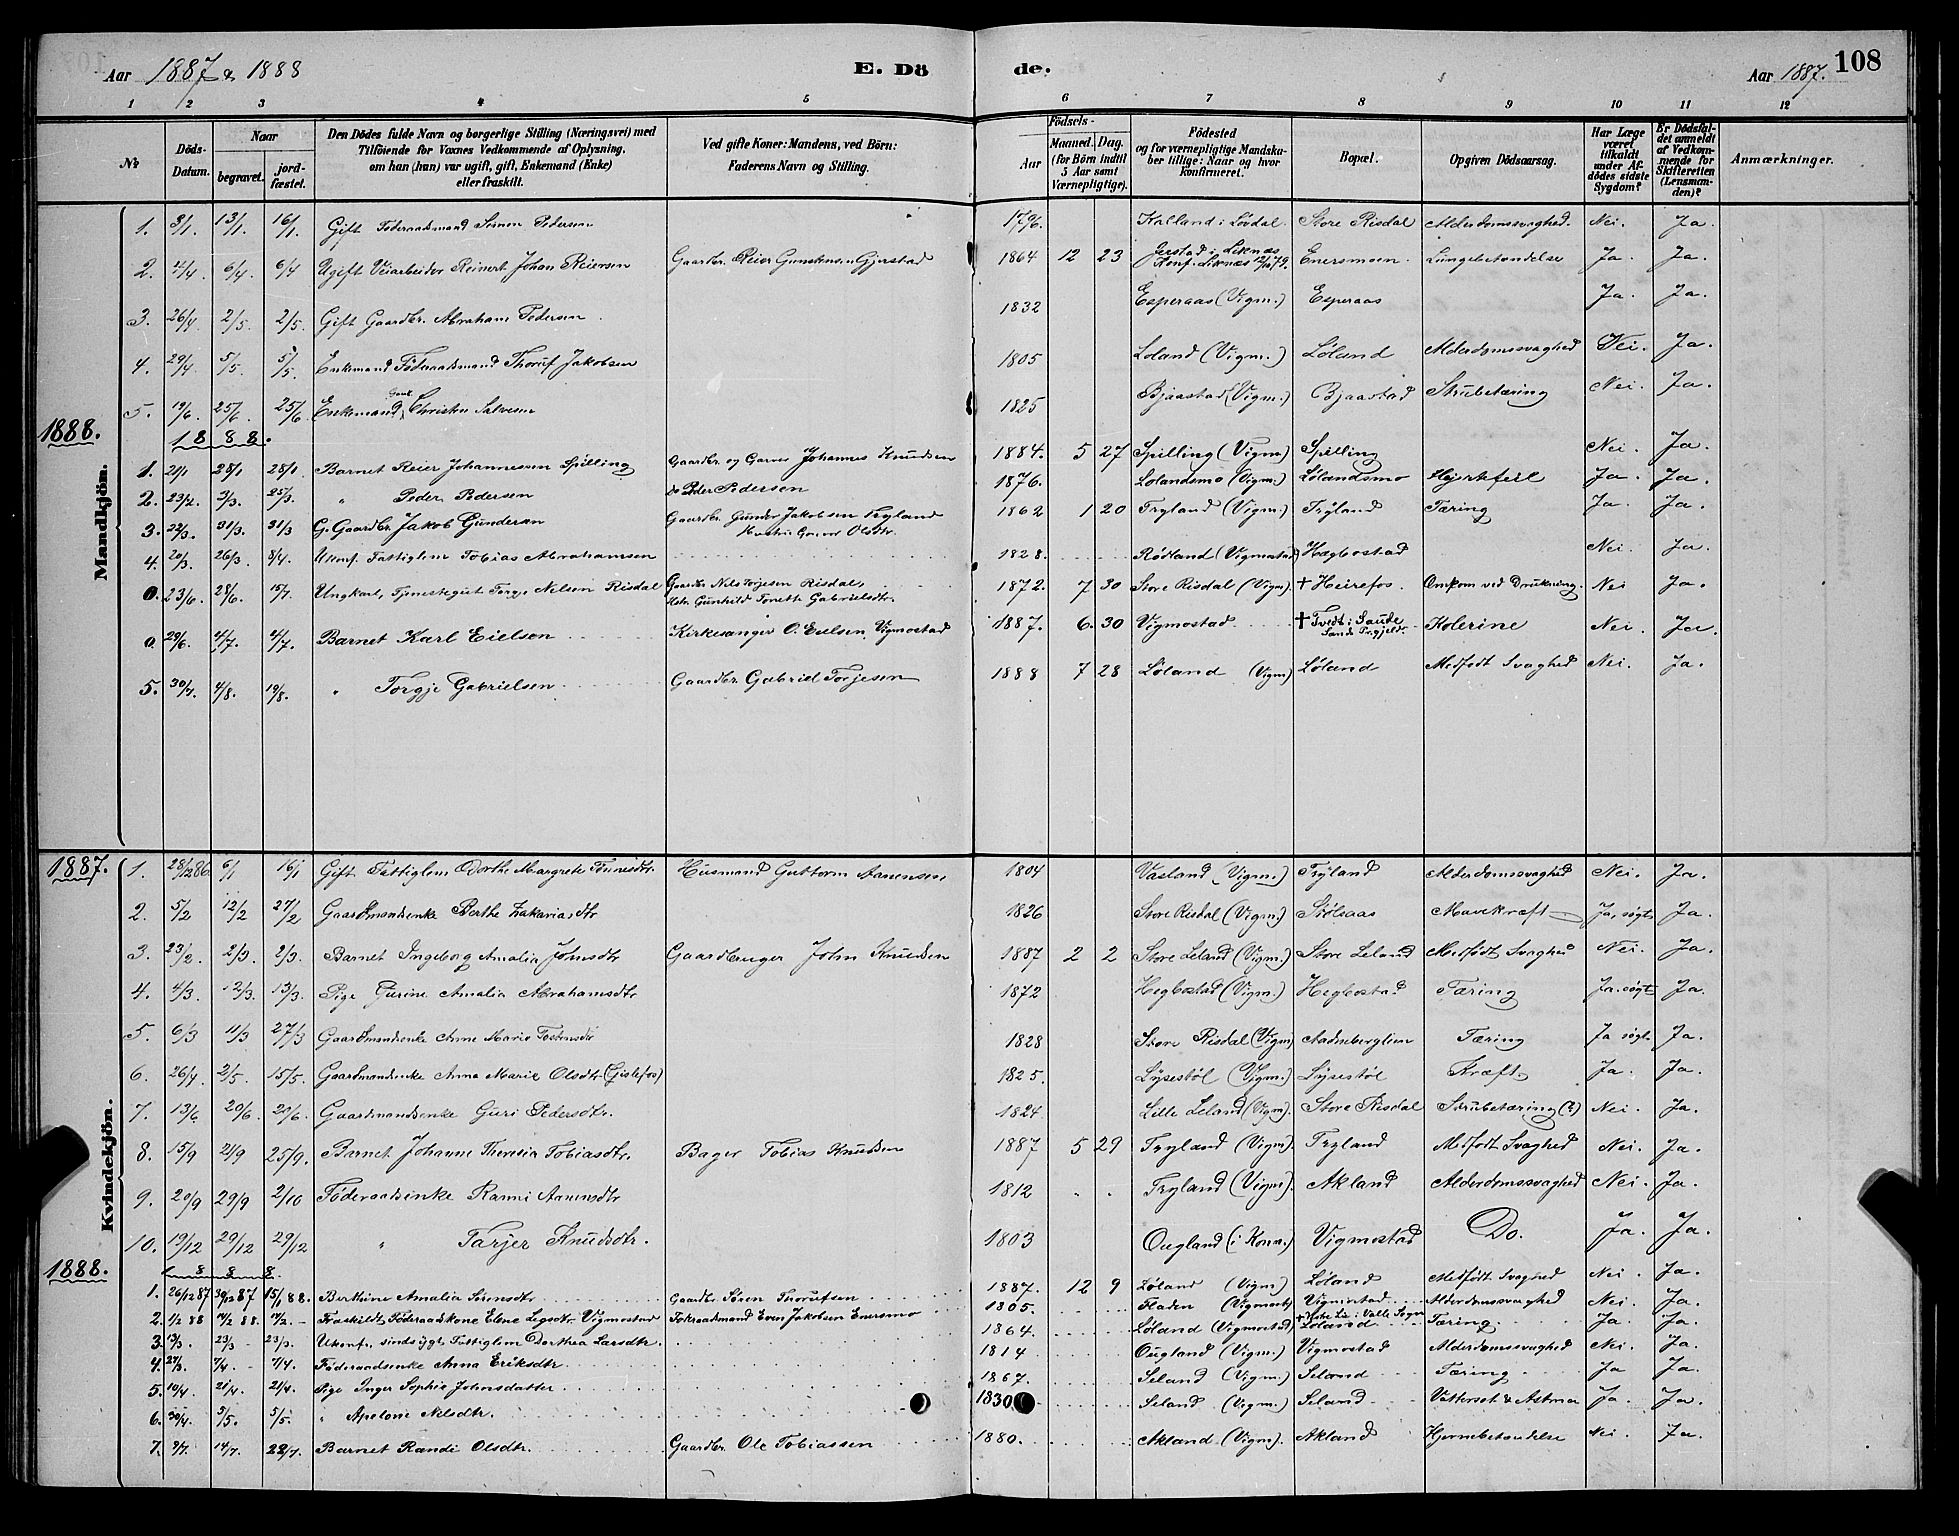 Aar 1887 & 1888 E. Dö de. Aar 1887. 108
1 2 3 4 5 6 7 8 9 10 11 12
No
Döds-Datum.
Naar
begravet.
jord-fæstet.
Den Dödes fulde Navn og borgerlige Stilling (Næringsvei) med
Tilföiende for Voxnes Vedkommende af Oplysning,
om han (hun) var ugift, gift, Enkemand (Enke)
eller fraskilt.
Ved gifte Koner: Mandens, ved Börn:
Faderens Navn og Stilling.
Födsels-
Aar
Maaned. Dag.
(for Börn indtil
5 Aar samt
Værnepligtige).
Födested
og for værnepligtige Mandska-
ber tillige: Naar og hvor
konfirmeret.
Bopæl.
Opgiven Dödsaarsag.
Har Læge
været
tilkaldt
under Af-
dödes sidste
Sygdom?
Er Dödsfal-
det anmeldt
af Vedkom-
mende for
Skifteretten
(Lensman-
den)?
Anmærkninger.
Mandkjön.
1. 3/1 13/1 16/1 Gift Föderaadsmand Simon Pedersen 1796. Haaland i Løvdal Store Risdal Alderdomssvaghed. Nei. Ja.
2. 2/4 6/4 6/4 Ugift Veiarbeider Reinert Johan Reiersen Gaardbr. Reier Gunstensen Gjerstad 1864 12 23 Gjerstad i Liknæs
Konf. Liknæs 12/10 79. Enersmoen. Lungebetændelse Ja. Ja.
3. 26/4 2/5 2/5. Gift Gaardbr. Abraham Pedersen 1832 Esperaas (Vigm.) Esperaas Ja. Ja.
4. 29/4 5/5 5/5 Enkemand Föderaadsmand Thoruf Jakobsen 1805 Løland (Vigm.) Løland Alderdomssvaghed Nei. Ja.
5. 19/6. 25/6 25/6 Enkemand Christen Salvesen 1825 Bjaastad (Vigm.) Bjaastad Strubetæring Nei. Ja.
1888.
1888.
1. 21/1 28/1 28/1 Barnet Reier Johannessen Spilling Gaardbr. og Garver Johannes Knudsen 1884. 5 27 Spilling (Vigm) Spilling Nei. Ja.
2. 23/2. 3/3. 25/3. " Peder Pedersen Do Peder Pedersen 1876. Lølandsmo (Vigm.) Lølandsmo Hjertefeil Ja. Ja.
3. 22/3. 31/3 31/3 G. Gaardbr. Jakob Gundersen Gaardbr. Gunder Jakobsen Tryland
Hustru Olsdtr. 1862 1 20 Tryland (Vigm.) Tryland Tæring Ja. Ja.
4. 20/3. 26/3 8/4. Ukonf. Fattiglem Tobias Abrahamsen 1828. Rødland (Vigmostad) Hægbostad Nei. Ja.
0. 23/6. 28/6. 15/7. Ungkarl, Tjenestegut Torje Nelsen Risdal Gaardbr Nils Torjesen Risdal,
Hstr. Gunhild Tonette Gabrielsdtr. 1872. 7 30 Store Risdal (Vigm.) † Heirefos. Omkom ved Drukning. Nei Ja.
0. 29/6. 4/7. 4/7. Barnet Karl Eielsen Kirkesanger O. Eielsen, Vigmostad 1887. 6. 30 Vigmostad † Tvedt i Saude Kolerine Nei. Ja.
5. 30/7. 4/8. 19/8. " Torgje Gabrielsen Gaardbr. Gabriel Torjesen 1888 7 28 Løland (Vigm) Løland Medfødt Svaghed Nei. Ja.
Kvindekjön.
1887.
1. 28/12 86. 6/1 16/1 Gift Fattiglem Dorthe Margrete Tønnesdtr. Husmand Guttorm Aanensen, 1804 Vasland (Vigm.) Tryland Alderdomssvaghed Nei. Ja.
2. 5/2 12/2 27/2 Gaardmandsenke Berthe Zakariasdtr 1826 Store Risdal (Vigm.) Stølsaas Mavekræft Ja, søgt Ja.
3. 23/2. 2/3. 2/3. Barnet Ingeborg Amalia Johnsdtr Gaardbruger John Knudsen 1887 2 2 Store Leland (Vigm.) Store Leland Medfødt Svaghed Nei. Ja.
4. 4/3. 12/3. 13/3. Pige Gurine Amalia Abrahamsdtr 1872 Hegbostad (Vigm.) Hegbostad Tæring Ja. søgt Ja.
5. 6/3 11/3 27/3 Gaardmandsenke Anne Marie 1828 Store Risdal (Vigm) Aadneberglien Tæring Ja søgt Ja.
6. 26/4. 2/5. 15/5. Gaardmandsenke Anna Marie Olsdtr (Gislefos) 1825. Lysestøl (Vigm.) Lysestøl Kræft Ja. Ja.
7. 13/6. 20/6. 20/6. Gaardmandsenke Guri Pedersdtr. 1824 Lille Leland (Vigm). Store Risdal Strubetæring (?) Nei. Ja.
8. 15/9 21/9 25/9. Barnet Johanne Theresia Tobiasdtr. Bager Tobias Knudsen 1887 5 29 Tryland (Vigm.) Tryland Medfødt Svaghed Nei. Ja.
9. 20/9 29/9 2/10 Föderaadsenke Ranni Aanensdtr 1812 " " Tryland (Vigm). Akland Alderdomssvaghed Nei. Ja.
10. 19/12 29/12 29/12 " Tarjer Knudsdtr. 1803 Ougland (i Konn.) Vigmostad Do. Ja. Ja.
1888.
1 8 8 8.
1. 26/12 87 30/12 87 15/1 88. Berthine Amalia Sørensdtr Gaardbr Søren Thorufsen 1887. 12 9 Løland (Vigm.) Løland Medfødt Svaghed Nei. Ja.
2. 1/2 88 11/2 88. 11/2. Fraskildt Föderaadskone Elene Vigmostad Föderaadsmand Even Jakobsen Enersmo 1805. Fladen (Vigmost) Vigmostad Alderdomssvaghed Nei. Ja.
3. 13/3. 23/3 23/3. Ukonf. sindssygt Fattiglem Dorthea Larsdtr. 1864. Løland (Vigmostad) Løland Tæring Ja. Ja.
4. 27/3. 7/4. 7/4. Föderaadsenke Anna Eriksdtr. 1814 Ougland (Vigm.) Vigmostad Alderdomssvaghed Nei. Ja.
5. 10/4. 21/4. 21/4. Pige Inger Sophie Johnsdatter 1867. Seland (Vigm.) Seland Tæring Ja Ja.
6. 30/4. 5/5. 5/5. " Apelone Nilsdtr. 1830 Seland (Vigm.) Seland Vattersot & Astma Ja. Ja.
7. 9/7. 14/7. 22/7. Barnet Randi Olsdtr. Gaardbr. Ole Tobiassen 1880. Akland (Vigm). Akland Hjernebetændelse Nei. Ja.